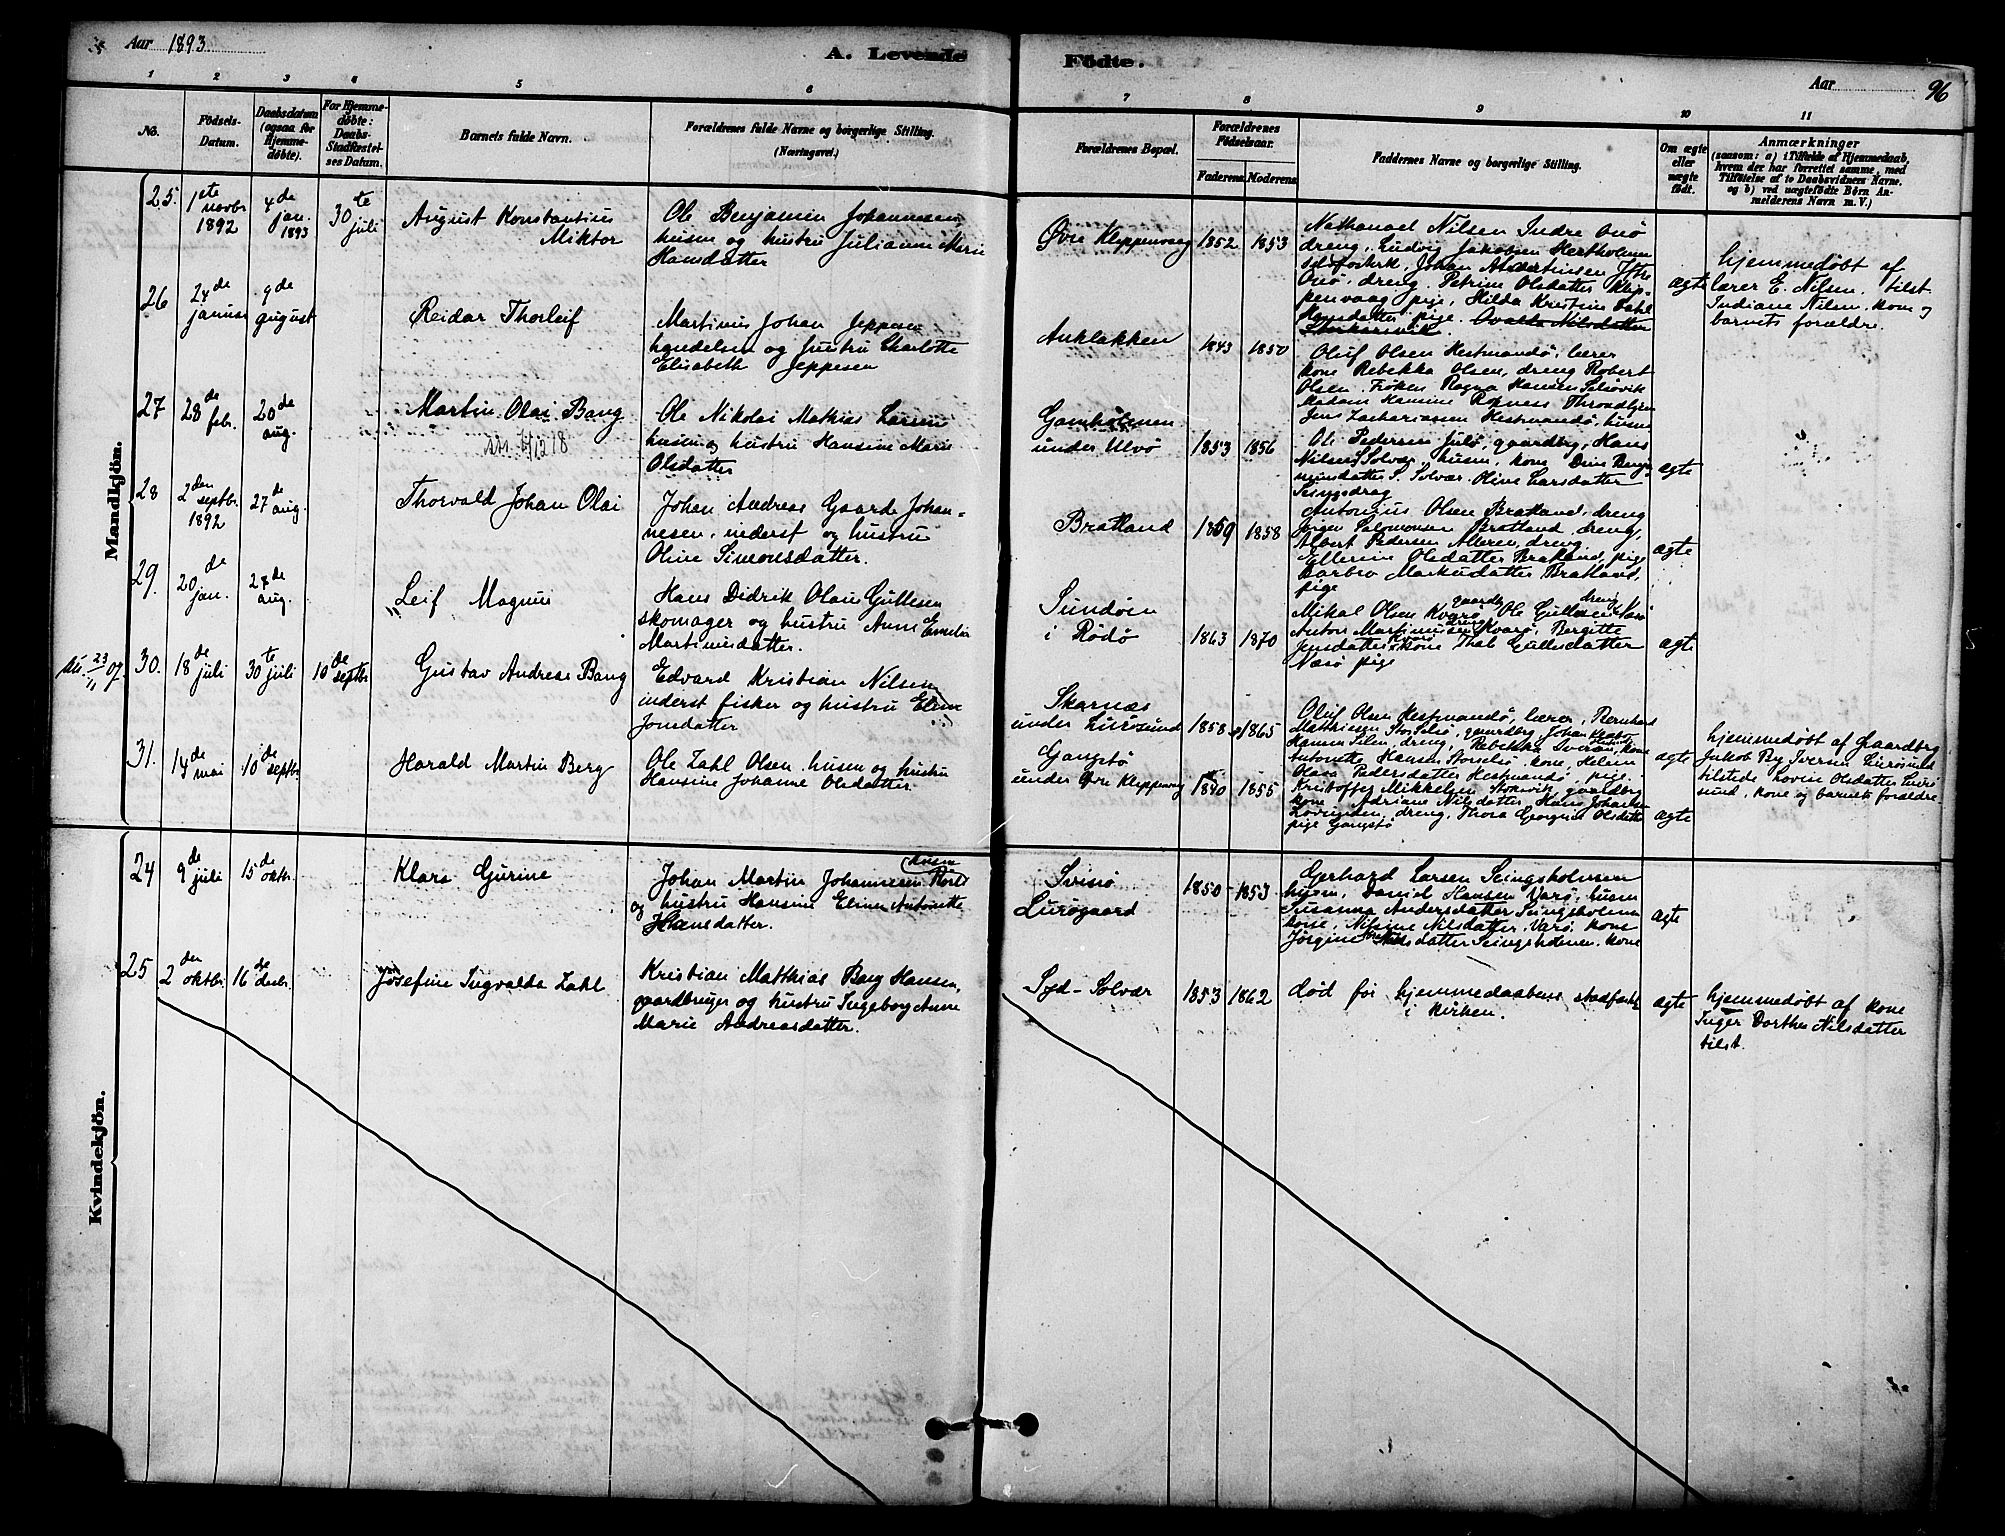 Aar 1893
A. Levende
Födte.
Aar
96
1 2 3 4 5 6 7 8 9 10 11
No.
Födsels-
Datum.
Daabsdatum
(ogsaa for
Hjemme-
døbte).
For Hjemme-
døbte:
Daabs-
Stadfæstel-
ses Datum.
Barnets fulde Navn.
Forældrenes fulde Navne og borgerlige Stilling.
(Næringsvei.)
Forældrenes Bopæl.
Forældrenes
Födselsaar.
Faderens.
Moderens.
Faddernes Navne og borgerlige Stilling.
Om ægte
eller
uægte
født.
Anmærkninger
(saasom: a) i Tilfælde af Hjemmedaab,
hvem der har forrettet samme, med
Tilføielse af to Daabsvidners Navne,
og b) ved uægtefödte Börn An-
melderens Navn m. V.)
Mandkjön.
25.
1ste
novbr.
1892
4de
jan.
1893
30te
juli
August Konstantius
Miktor
Ole Benjamin Johannesen,
husm. og hustru Julianne Marie
Hansdatter
Øvre Kleppenvaag
1852
1853
Nathanael Nilsen Indre Onø
dreng, Ludvig Jakobsen Hestholmen
Johan
Onø, dreng. Petrine Olsdatter Klip-
penvaag pige, Hilda Kristine Dahl
Hansdatter pige.
ægte
hjemmedøbt af
lærer E. Nilsen. tilst.
Indiane Nilsen, kone og
barnets forældre.
26
24de
januar
9de
august
Reidar Thorleif
Martinus Johan Jeppesen
handelsm. og hustru Charlotte
Elisabeth Jeppesen
Anklakken
1843
1850
Oluf Olsen Hestmandø, lærer
kone Rebekka Olsen, dreng Robert
Olsen. Frøken Ragna Hansen Selsøvik
Madam Hansine
Jens Zachariassen Hestmandø, husm
27
28de
feb.
20de
aug.
Martin Olai Bang
Ole Nikolai Mathias Larsen
husm. og hustru Hansine Marie
Olsdatter
Gamholmen
under Ulvø
1853
1856
Ole Pedersen gaardbr, Hans
Nilsen S. Solvær, husm., kone
S. Solvær. Oline Larsdatter
ægte
28
2den
septbr.
1892
27de
aug.
Thorvald Johan Olai
Johan Andreas Gaarde Johan-
nesen, inderst og hustru
Oline Simonsdatter.
Bratland
1859
1858
Antonius Olsen Bratland, dreng
Jørgen Salomonsen Bratland, dreng,
Albert Pedersen Alteren, dreng,
Ellerine Olsdatter Bratland, pige
Barbro Markusdatter Bratland,
pige
ægte
29.
20de
jan.
28de
aug.
Leif Magnus
Hans Didrik Olaus Gullesen
skomager og hustru Anne Emelie
Martinusdatter.
Sundøen
i Rødø
1863
1870
Mikal Olsen Kvarø gaardbr, Ole Gullesen dreng
Anton Martinussen Kvarø, Bergitte
Jensdatter kone Thal Gullesdatter
Næsø pige
ægte
23/11 07.
30.
18de
juli
30te
juli
10de
septbr.
Gustav Andreas Bang
Edvard Kristian Nilsen
inderst fisker og hustru Eline
Jonsdatter
Skarnæs
under Lurøsund
1858
1865
Oluf Olsen Hestmandø, lærer, Bernhard
Matthiesen Storselsø, gaardbr, Johan
Hansen Selen, dreng, Rebekka Iversen, kone
Antonette Hansen Storselsø kone, Heline
Olava Pedersdatter Hestmandø, pige.
ægte
hjemmedøbt af Gaardbrg
Jakob By Iversen Lurøsund
tilstede Lovine Olsdatter Lurø
sund, kone og barnets forældre.
31.
14de
mai
10de
septbr.
Harald Martin Berg
Ole Zahl Olsen, husm. og hustru
Hansine Johanne Olsdatter.
Gangstø
under Øvre Kleppenvaag
1840
1855
Kristoffer Mikkelsen Stokvik, gaardbrg
kone, Adriane Nilsdatter, Hans Johansen
Lovunden, dreng, Thora Georgine Olsdatter
pige Gangstø
ægte
Kvindekjön.
24
9de
juli
15de
oktbr.
Klara Gjurine
Johan Martin Johannesen husm
og hustru Hansine Eline Antonette
Hansdatter.
Svinø
Lurøgaard
1850
1853
Gerhard Larsen Seingsholmen
husm, Daniel Hansen Varø, husm
Susanna Andersdatter Seingsholmen
kone, Nilsine Nilsdatter, Varø, kone
Jørgine Nilsdatter Seingsholmen, kone
ægte
25
2den
oktbr.
16de
decbr.
Josefine Ingvalda Zahl
Kristian Matthias Bang Hansen,
gaardbruger og hustru Ingeborg Anne
Marie Andreasdatter.
Syd-Solvær
1853
1862
død før hjemmedaabens stadfæst.
i kirken.
ægte
hjemmedøbt af kone
Inger Dorthea Nilsdatter
tilst.